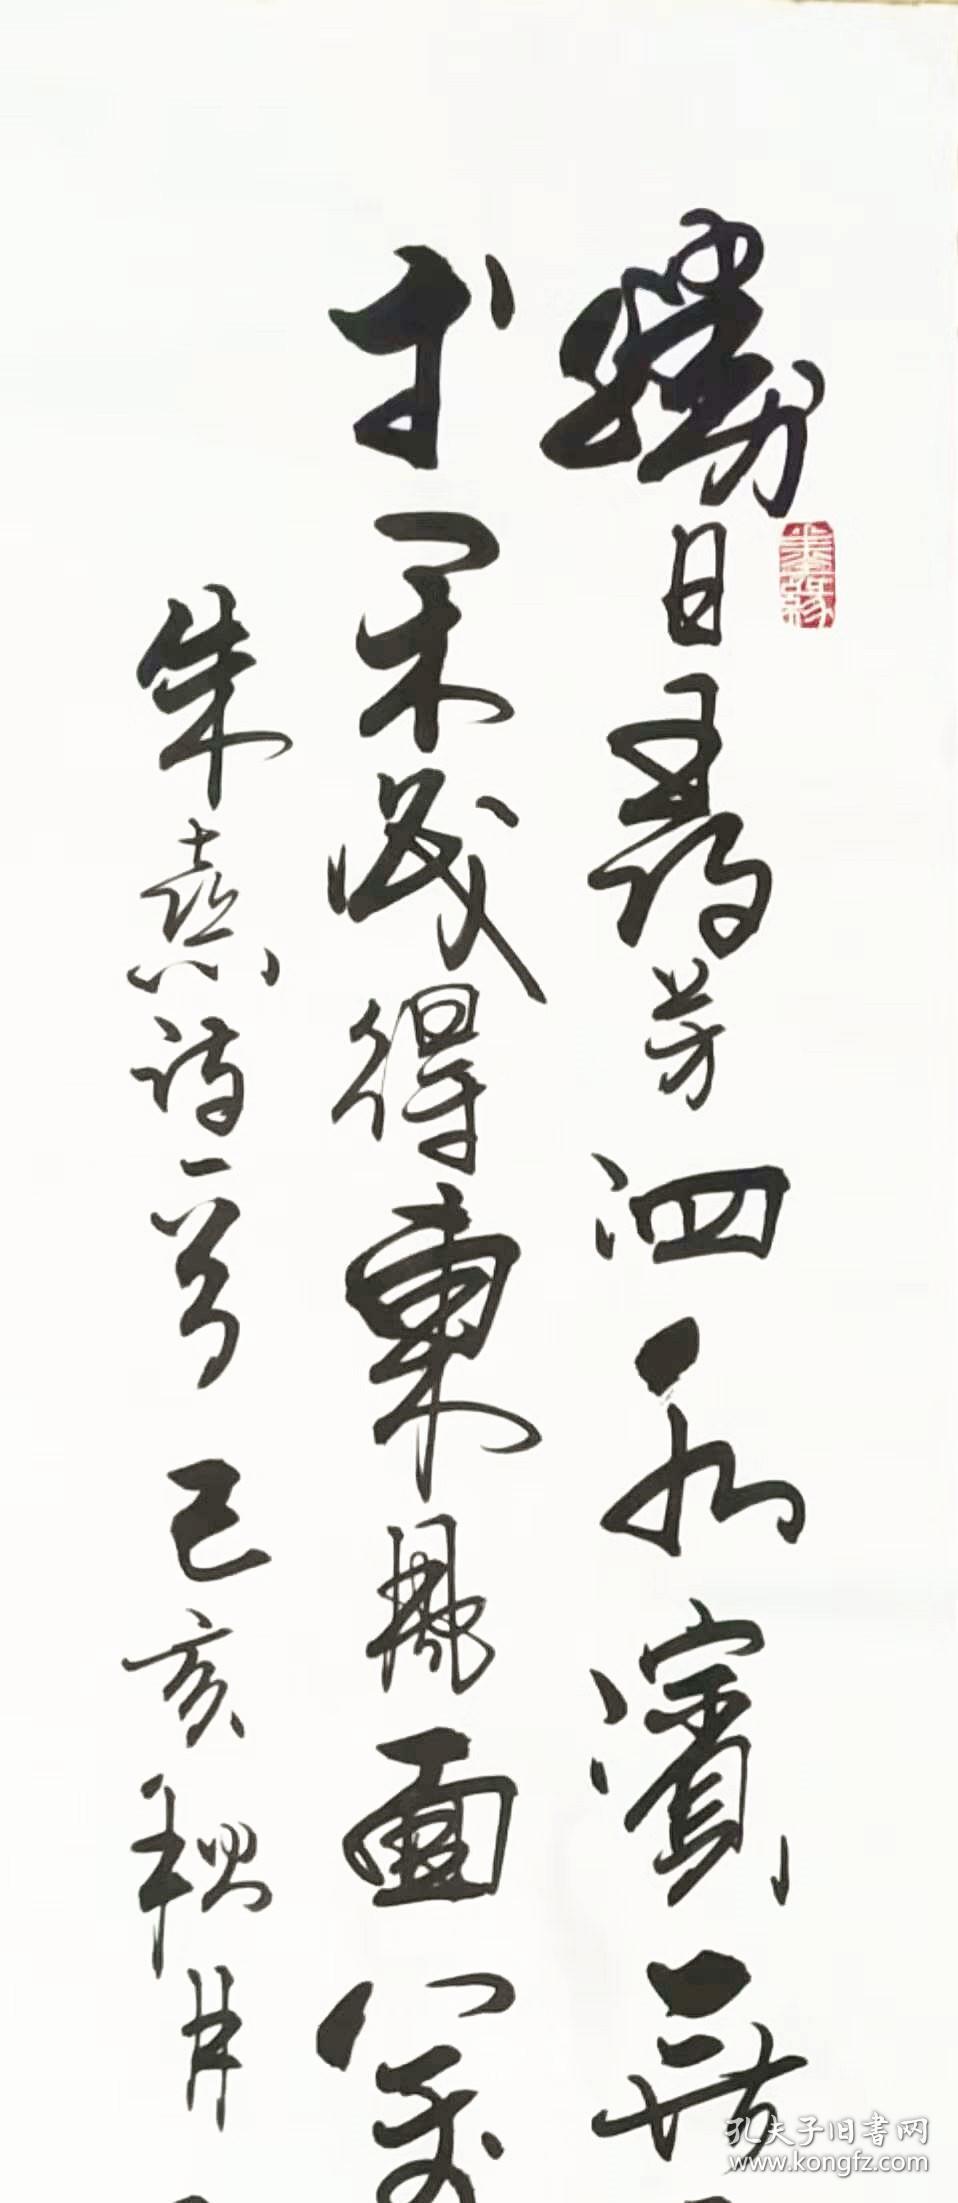 勝日尋芳泗水濱無
等閑識得東風面萬
朱熹詩一首 己亥秋月
孔夫子旧书网
www.kongfz.com